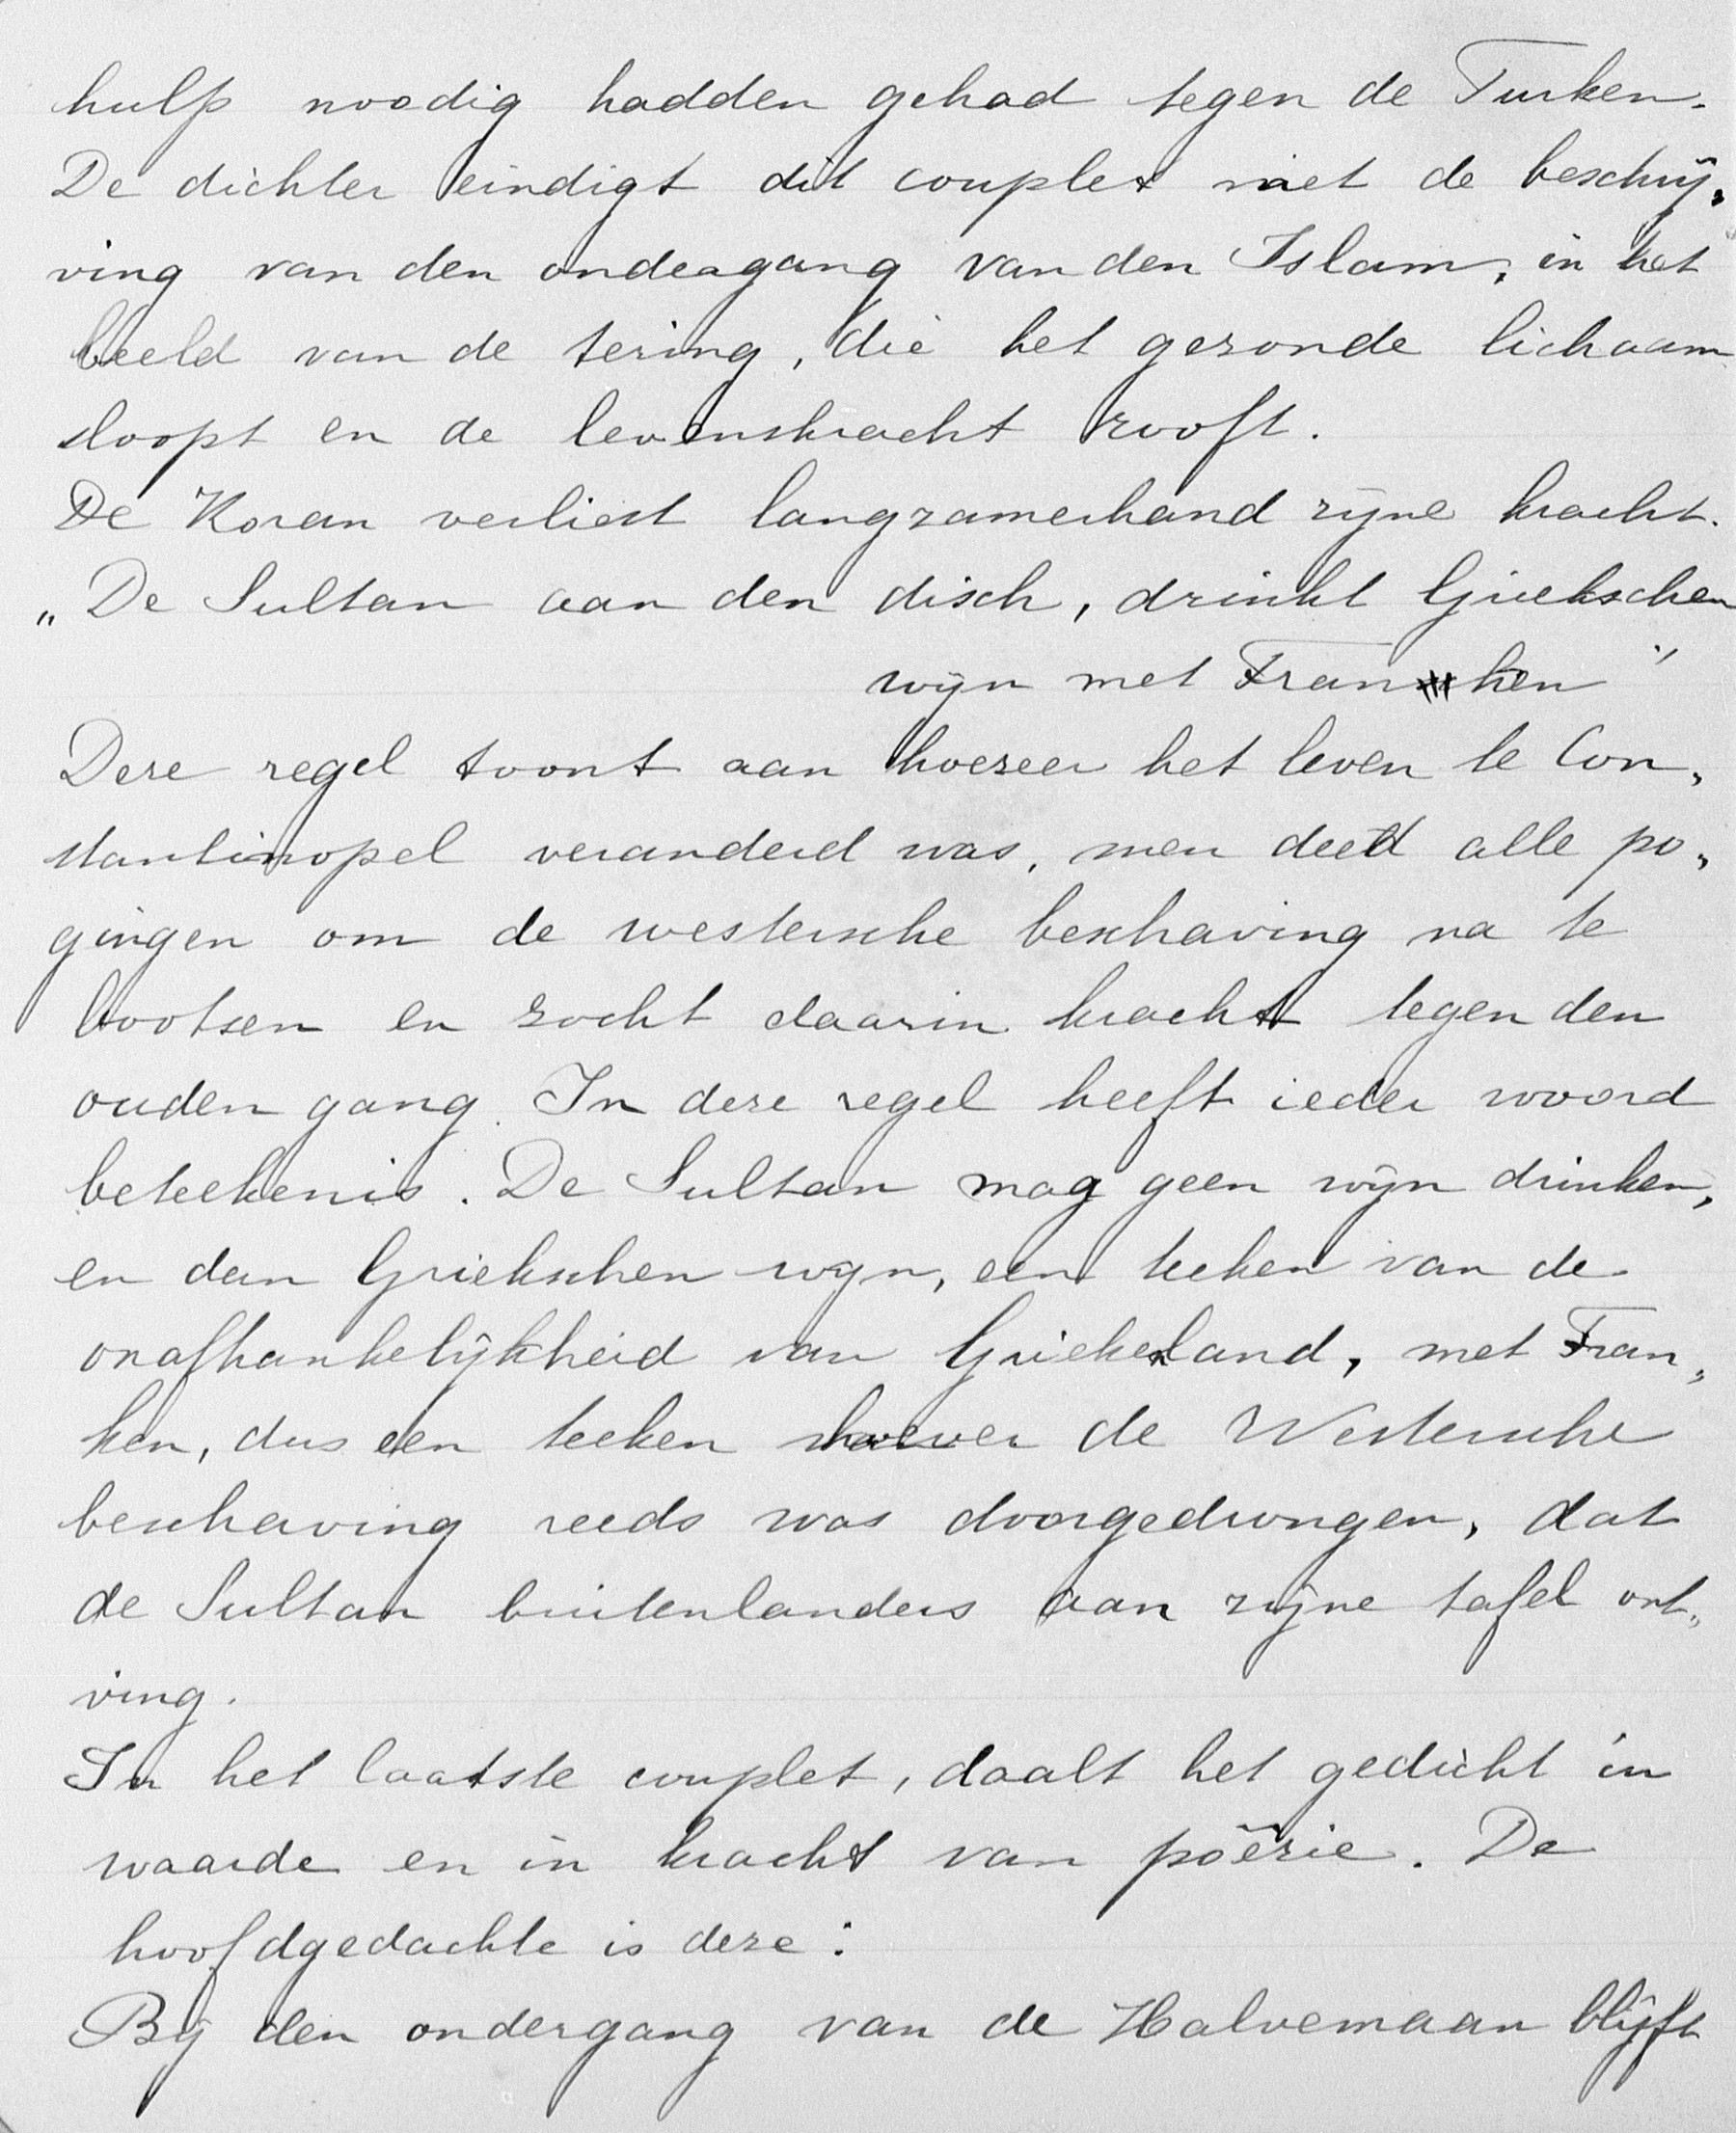 hulp noodig hadden gehad tegen de Turken.
De dichter eindigt dit couplet met de beschrij„
ving van den ondergang van den Islam, in het
beeld van de tering, die het gezonde lichaam
sloopt en de levenskracht rooft.
De Koran verliest langzamerhand zijne kracht.
„De Sultan aan den disch, drinkt Griekschen
wijn met Franken"
Deze regel toont aan hoezeer het leven te Con„
stantinopel veranderd was, men deed alle po„
gingen om de westersche beschaving na te
bootsen en zocht daarin kracht tegen den
ouden gang. In deze regel heeft ieder woord
beteekenis. De Sultan mag geen wijn drinken,
en dan Griekschen wijn, een teeken van de
onafhankelijkheid van Griekenland, met Fran„
ken, dus een teeken hoever de Westersche
beschaving reeds was doorgedrongen, dat
de Sultan buitenlanders aan zijne tafel ont„
ving.
In het laatste couplet, daalt het gedicht in
waarde en in kracht van poëzie. De
hoofdgedachte is deze:
Bij den ondergang van de Halvemaan blijft